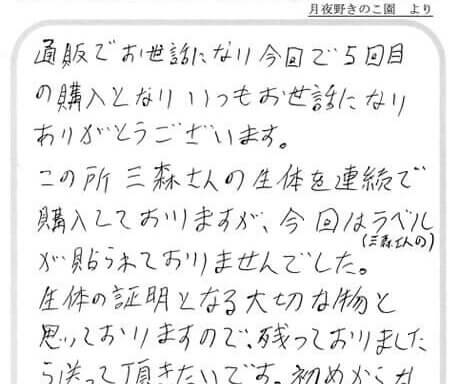 月夜野きのこ園 より
通販でお世話になり今回で5回目
の購入となりいつもお世話になり
ありがとうございます。
この所三森さんの生体を連続で
購入しておりますが、今回はラベル
(三森さんの)
が貼られておりませんでした。
生体の証明となる大切な物と
思っておりますので、残っておりました
ら送って頂きたいです。初めから